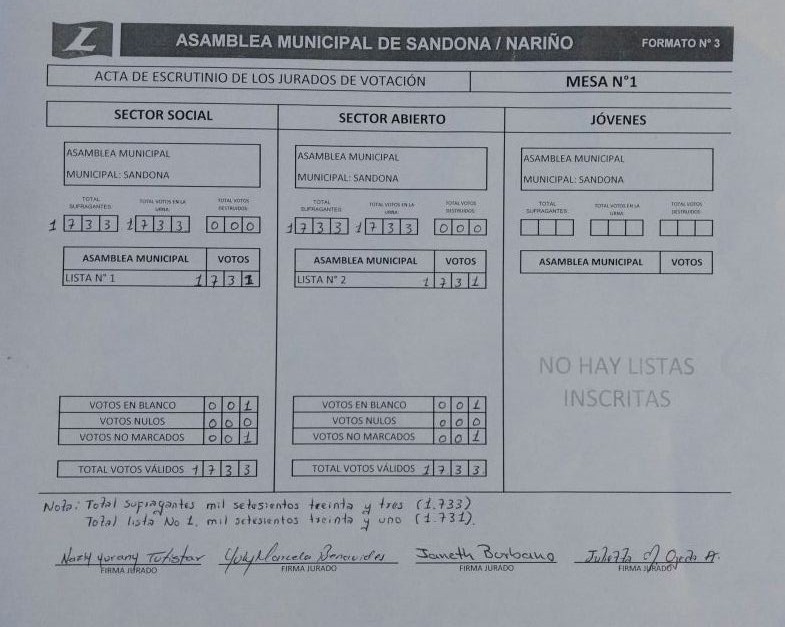 L
ASAMBLEA MUNICIPAL DE SANDONA / NARIÑO
FORMATO N° 3
ACTA DE ESCRUTINIO DE LOS JURADOS DE VOTACIÓN
MESA N°1
SECTOR SOCIAL
ASAMBLEA MUNICIPAL
MUNICIPAL: SANDONA
TOTAL SUFRAGANTES
TOTAL VOTOS EN LA URNA
TOTAL VOTOS DESTRUIDOS
1 7 3 3
1 7 3 3
0 0 0
ASAMBLEA MUNICIPAL VOTOS
LISTA N° 1 1 7 3 1
VOTOS EN BLANCO 0 0 1
VOTOS NULOS 0 0 0
VOTOS NO MARCADOS 0 0 1
TOTAL VOTOS VÁLIDOS 1 7 3 3
SECTOR ABIERTO
ASAMBLEA MUNICIPAL
MUNICIPAL: SANDONA
TOTAL SUFRAGANTES
TOTAL VOTOS EN LA URNA
TOTAL VOTOS DESTRUIDOS
1 7 3 3
1 7 3 3
0 0 0
ASAMBLEA MUNICIPAL VOTOS
LISTA N° 2 1 7 3 1
VOTOS EN BLANCO 0 0 1
VOTOS NULOS 0 0 0
VOTOS NO MARCADOS 0 0 1
TOTAL VOTOS VÁLIDOS 1 7 3 3
JÓVENES
ASAMBLEA MUNICIPAL
MUNICIPAL: SANDONA
TOTAL SUFRAGANTES
TOTAL VOTOS EN LA URNA
TOTAL VOTOS DESTRUIDOS
ASAMBLEA MUNICIPAL VOTOS
NO HAY LISTAS
INSCRITAS
Nota: Total sufragantes mil setesientos treinta y tres (1.733)
Total lista No 1. mil setesientos treinta y uno (1.731).
Yuly Marcela Benavides
Janeth Burbano
FIRMA JURADO
FIRMA JURADO
FIRMA JURADO
FIRMA JURADO